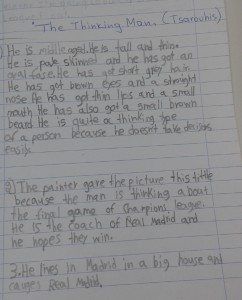 "The Thinking Man. (Tsarouhis)
1) He is middle aged. He is tall and thin.
He is pale skinned and he has got an
oval face. He has got short grey hair.
He has got brown eyes and a straight
nose. He has got thin lips and a small
mouth. He has also got a small brown
beard. He is quite a thinking type
of a person because he doesn't take decisions
easily.
2) The painter gave the picture this title
because the man is thinking about
the final game of Champions league.
He is the coach of Real Madrid and
he hopes they win.
3. He lives in Madrid in a big house and
Real Madrid.